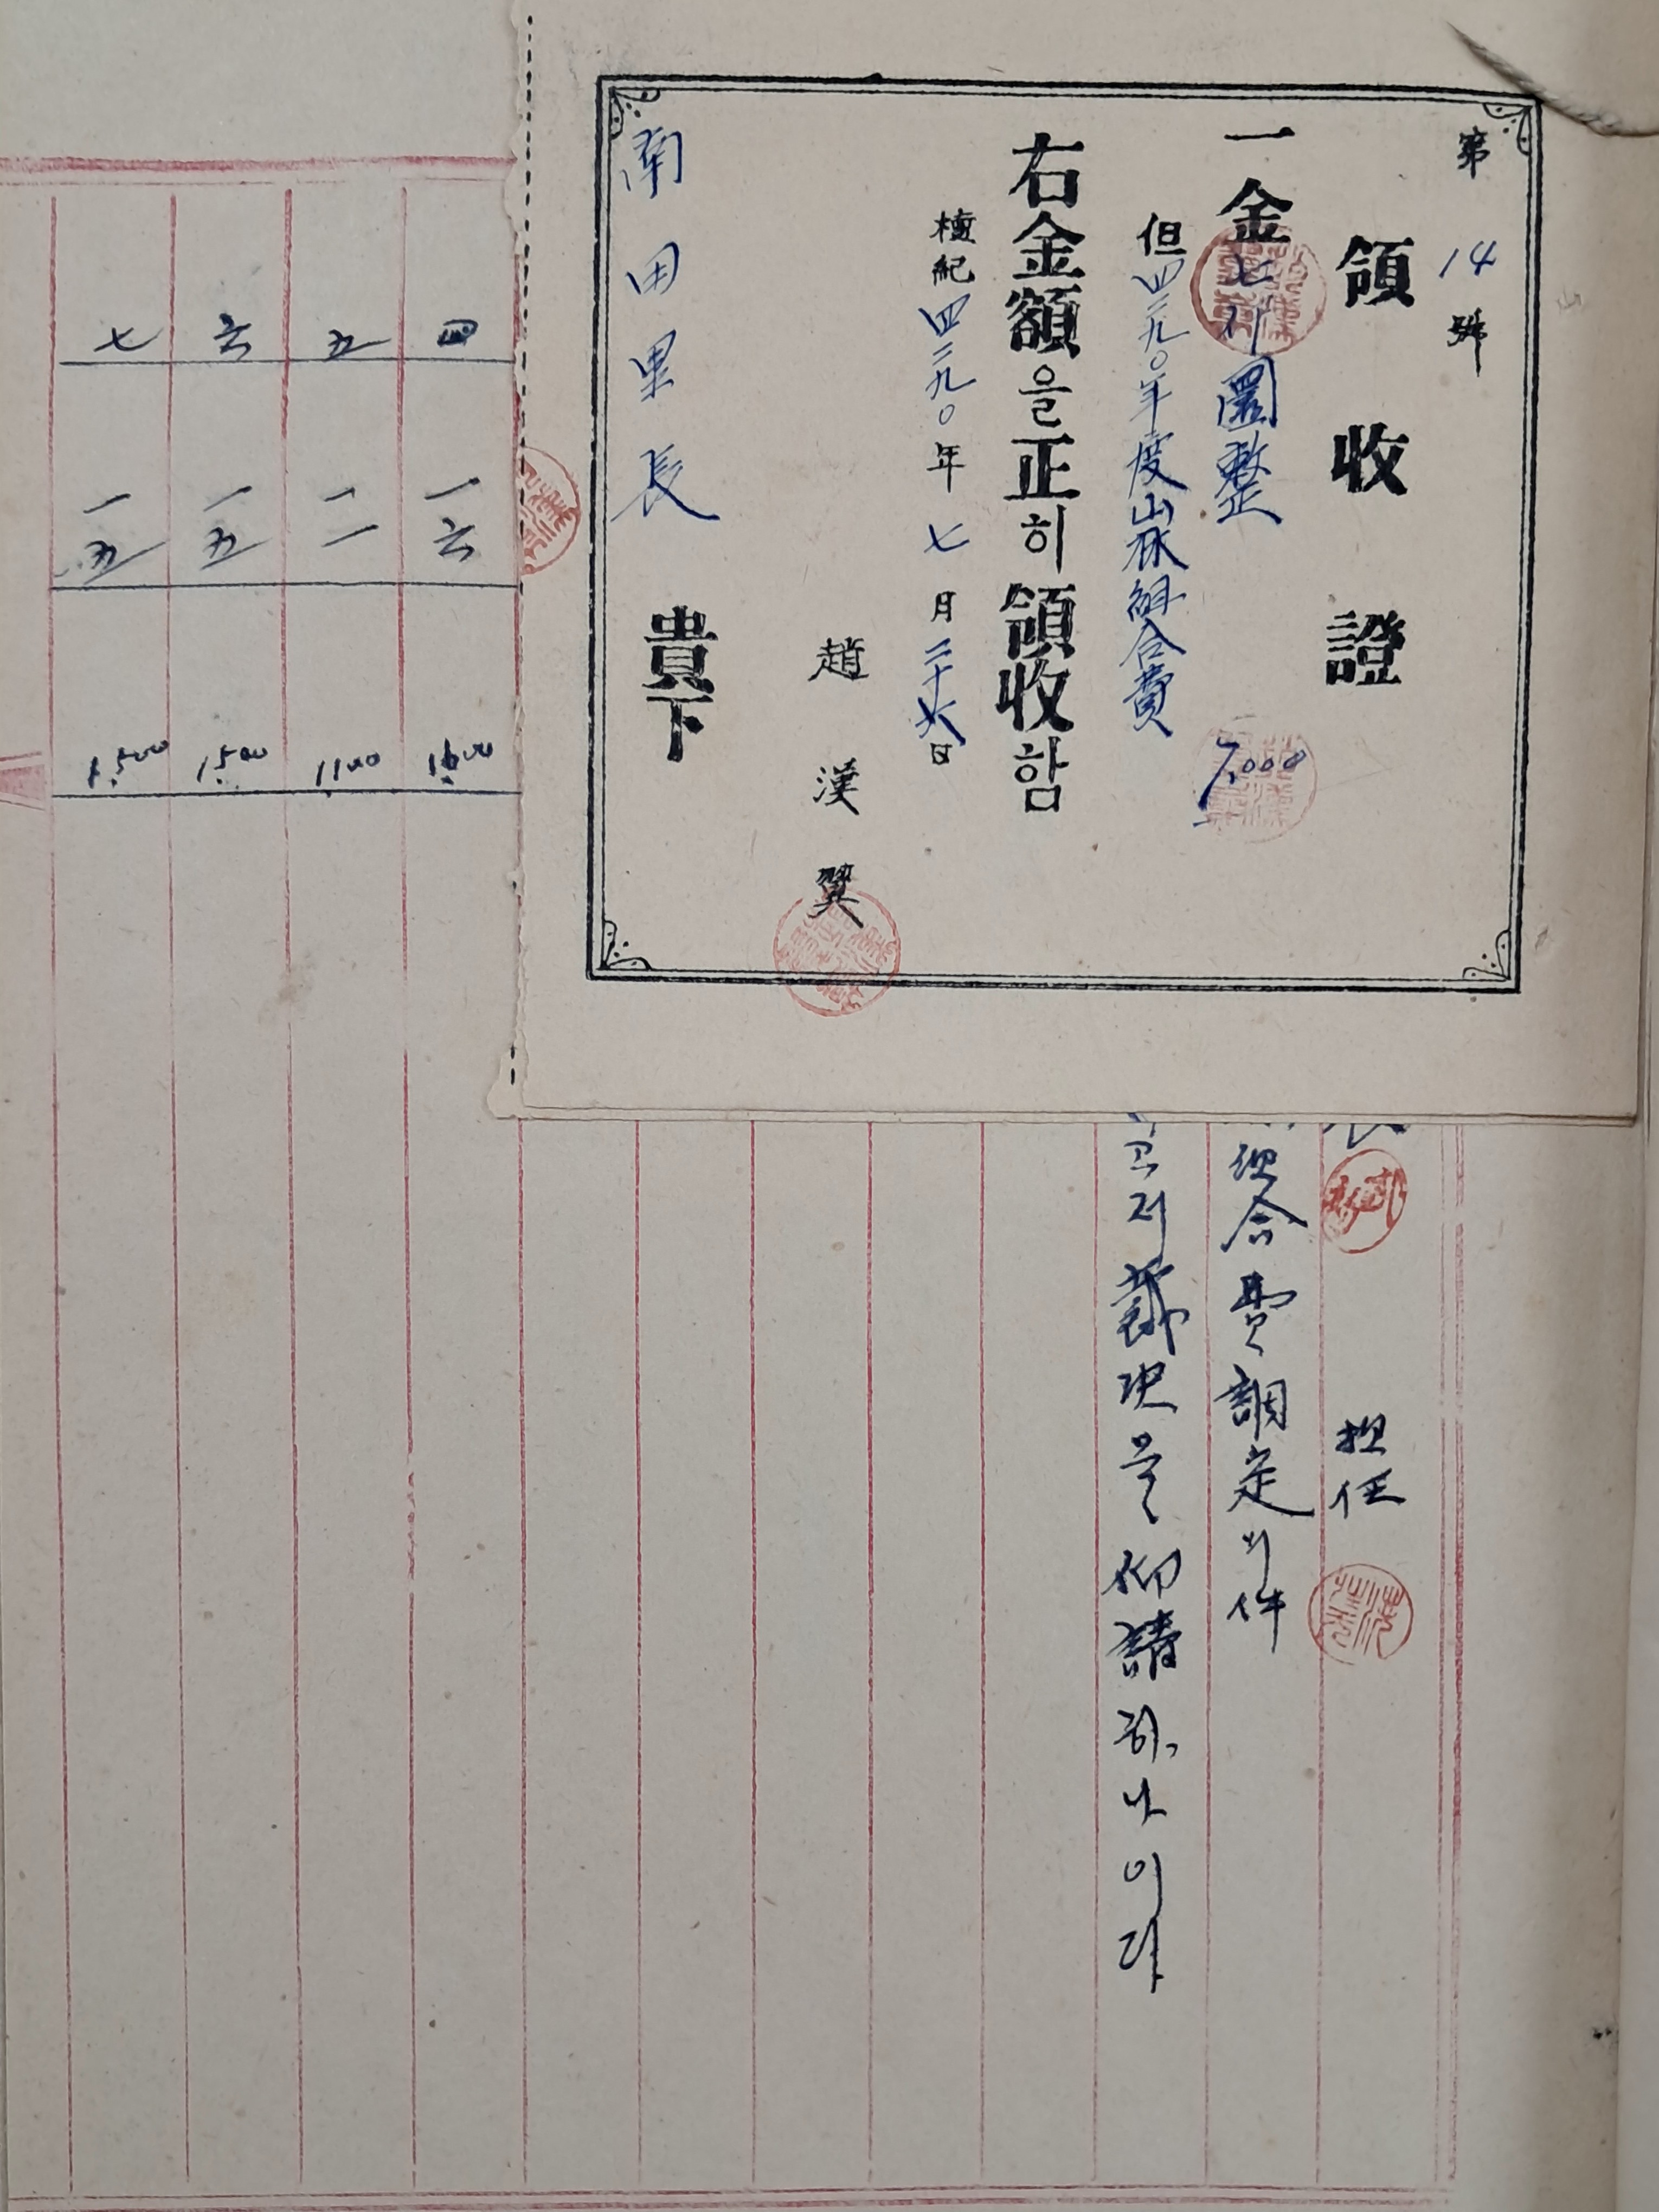 第 14 號
領收證
一金七仟圜整
7,000
但四二九〇年度山林組合費
右金額을正히領收함
檀紀四二九〇年七月二十六日
趙漢翼
南田里長 貴下
担任
組合費調定의件
고저 裁决을 仰請하나이다
四 一六 1600
五 一一 1100
六 一五 1500
七 一五 1500